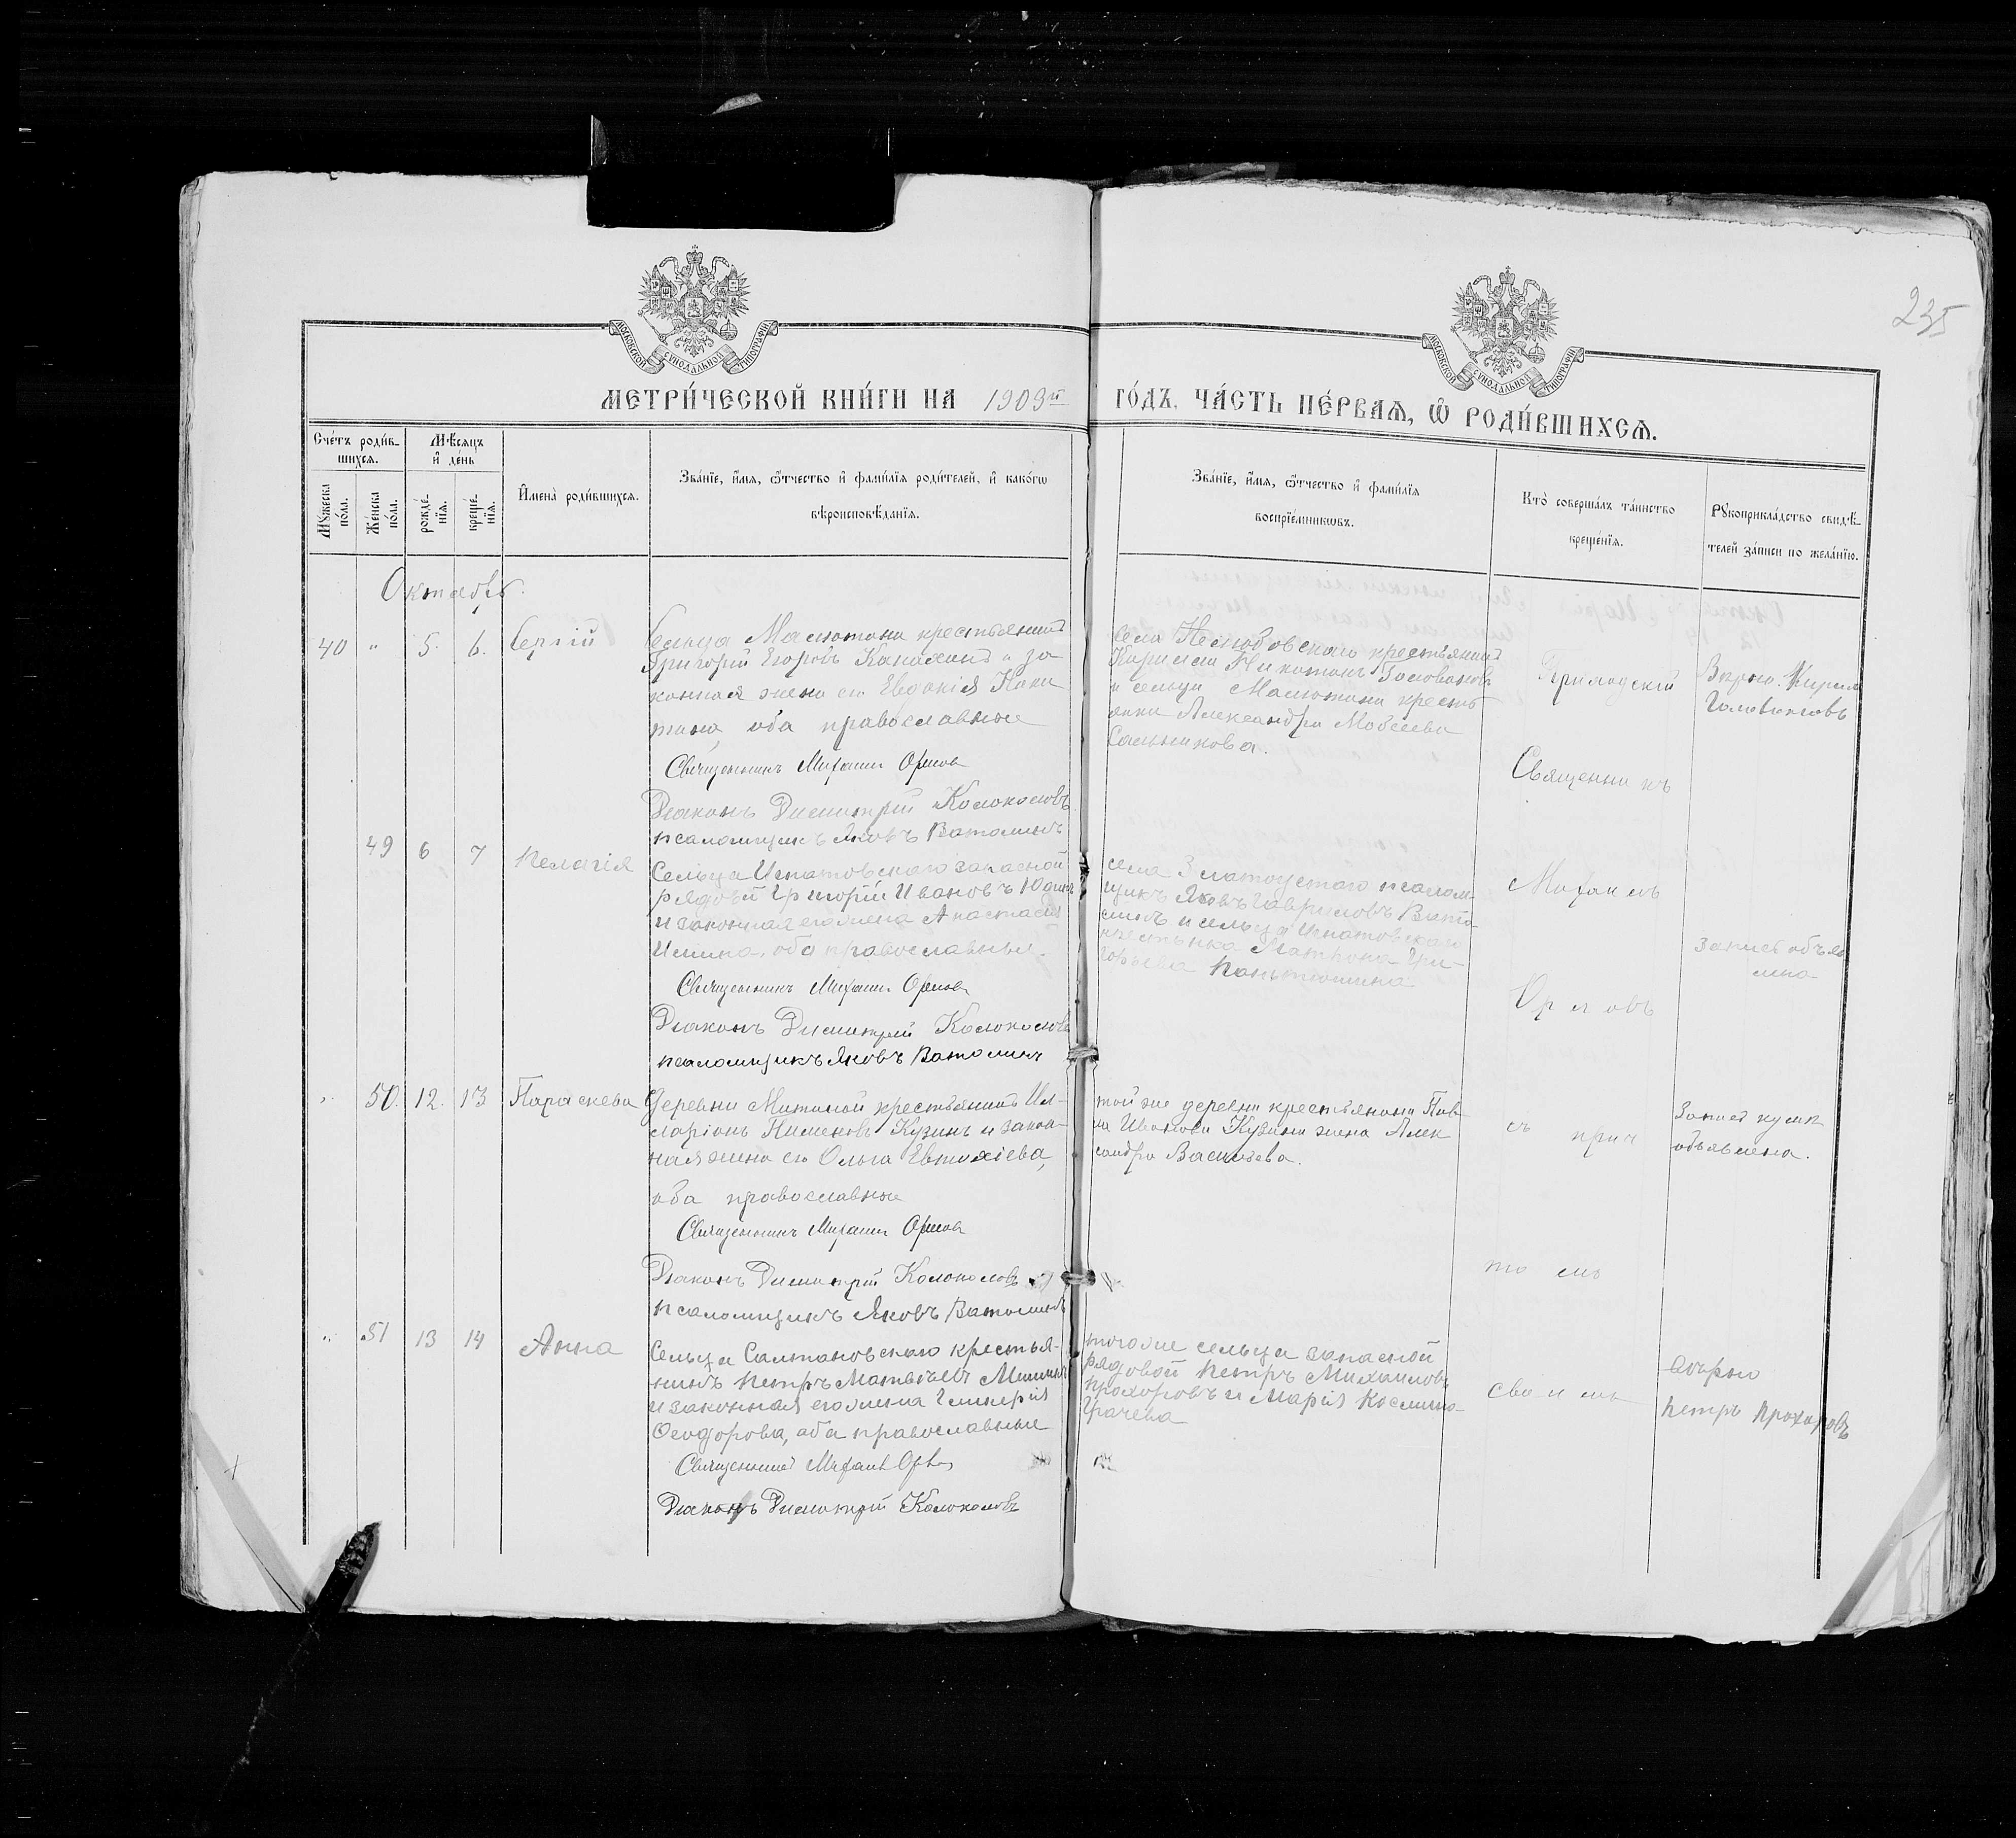 235
МОСКОВСКОЙ СУНОДАЛЬНОЙ ТИПОГРАФІИ
МОСКОВСКОЙ СУНОДАЛЬНОЙ ТИПОГРАФІИ
МЕТРИ́ЧЕСКОЙ КНИ́ГИ НА 1909й ГО́ДЪ, ЧА́СТЬ ПЕ́РВАѦ, Ѽ РОДИ́ВШИХСѦ.
Сче́тъ роди́в-
шихсѧ.
Мꙋжеска по́ла.
Же́нска по́ла.
Мѣ́сѧцъ
и҆ де́нь
рожде́-
нїѧ.
креще́-
нїѧ.
И҆мена̀ роди́вшихсѧ.
Зва́нїе, и҆́мѧ, ѻ҆́тчество и҆ фами́лїѧ роди́телей, и҆ како́гѡ
вѣроисповѣ́данїѧ.
Зва́нїе, и҆́мѧ, ѻ҆́тчество и҆ фами́лїѧ
воспрїе́мникѡвъ.
Кто̀ соверша́лъ та́инство
креще́нїѧ.
Рꙋкоприкла́дство свидѣ́-
телей за́писи по жела́нїю.
Октябрь.
40 " 5. 6. Сергій
Сельца Масютина крестьянинъ
Григорій Егоровъ и за
конная жена его Евдокія Ники
тина, оба православные
Священникъ Михаилъ Орлов
Діаконъ Димитрій Колоколовъ
псаломщикъ Яковъ Ватолинъ
Села крестьянинъ
Кириллъ Головановъ
и сельца Масютина кресть
янка Александра Моѵсеева
Сальникова.
Приходскій
Кирилл
Головановъ
Священникъ
49 6 7 Пелагія
Сельца Игнатовскаго запасной
рядовой Григорій Ивановъ Юдинъ
и законная его жена Анастасія
Ильина, оба православные.
Священникъ Михаилъ Орлов
Діаконъ Димитрій Колоколовъ
псаломщикъ Яковъ Ватолинъ
села Златоустаго псалом-
щикъ Яковъ Гавриловъ Вато-
линъ и сельца Игнатовскаго
Матрона Гри-
горьева Паньтюшина
Михаилъ
Орловъ
Запись объяв
лена
" 50. 12. 13 Параскева
Деревни Митиной крестьянинъ Ил-
ларіонъ Пименовъ Кузинъ и закон-
ная жена его Ольга Евтихіева,
оба православные
Священникъ Михаилъ Орлов
Діаконъ Димитрій Колоколовъ
псаломщикъ Яковъ Ватолинъ
той же деревни крестьянина Пав-
ла Иванова Кузина жена Алек
сандра Васильева.
съ прич
Запись
объявлена.
томъ
" 51 13 14 Анна
Сельца Салтановскаго крестья-
нинъ Петръ Матвѣевъ
и законная его жена Гликерія
Ѳеодорова, оба православные
Священникъ Михаилъ Орлов
Діаконъ Димитрій Колоколовъ
того же сельца запасной
рядовой Петръ Михаиловъ
Прохоровъ и Марія Косьмина
Грачева
своимъ
Вѣрно
Петръ Прохоровъ